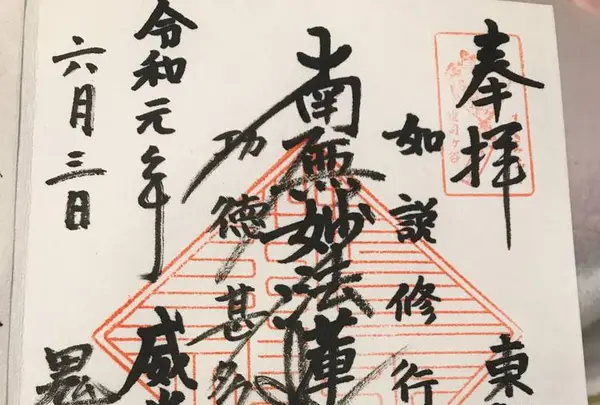 奉拝
如説修行
東
南無妙法蓮
功徳甚多
威光
令和元年
六月三日